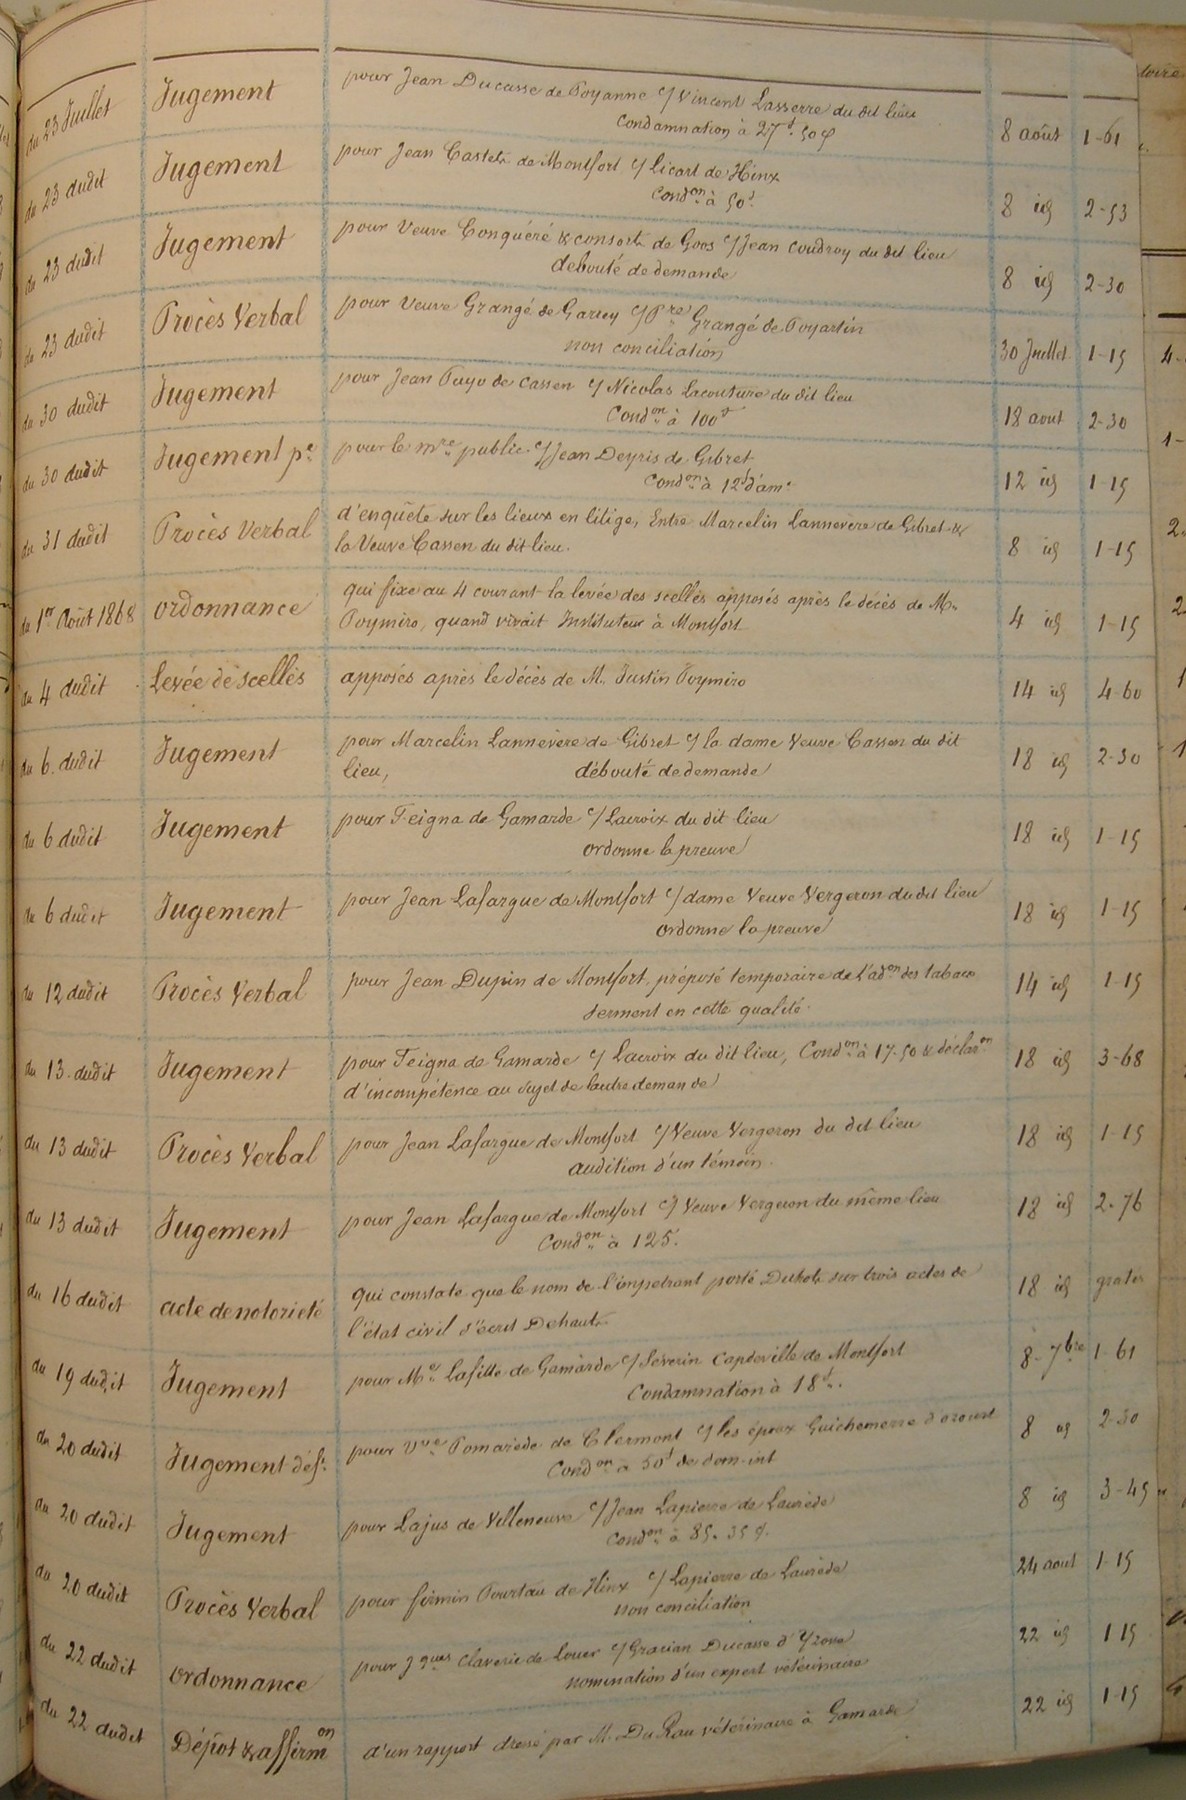 du 23 Juillet Jugement pour Jean Ducasse de Poyanne c/ Vincent Lasserre du dit lieu 8 août 1-61
Condamnation à 27f.50c
du 23 dudit Jugement pour Jean Castets de Montfort c/ Licart de Hinx 8 id 2-53
Condon à 50f
du 23 dudit Jugement pour Veuve Conquéré & consorts de Goos c/ Jean Coudroy du dit lieu 8 id 2-30
debouté de demande
du 23 dudit Procès Verbal pour Veuve Grangé de Garrey c/ Pre Grangé de Poyartin 30 Juillet 1-15
non conciliation
du 30 dudit Jugement pour Jean Puyo de Cassen c/ Nicolas Lacouture du dit lieu 18 aout 2-30
Condon à 100f
du 30 dudit Jugement pe pour le mre public c/ Jean Deyris de Gibret 12 id 1-15
Condon à 12f d'ame
du 31 dudit Procès Verbal d'enquête sur les lieux en litige, Entre Marcelin Lannevère de Gibret & 8 id 1-15
la Veuve Cassen du dit lieu.
du 1er Août 1868 ordonnance qui fixe au 4 courant la levée des scellés apposés après le décès de M. 4 id 1-15
Poymiro, quand vivait Instituteur à Montfort
du 4 dudit Levée de scellés apposés après le décès de M. Justin Poymiro 14 id 4-60
du 6 dudit Jugement pour Marcelin Lannevère de Gibret c/ la dame Veuve Cassen du dit 18 id 2-30
lieu, débouté de demande
du 6 dudit Jugement pour Feigna de Gamarde c/ Lacroix du dit lieu 18 id 1-15
ordonne la preuve
du 6 dudit Jugement pour Jean Lafargue de Montfort c/ dame Veuve Vergeron du dit lieu 18 id 1-15
ordonne la preuve
du 12 dudit Procès Verbal pour Jean Dupin de Montfort, préposé temporaire de l'adon des tabacs 14 id 1-15
serment en cette qualité.
du 13 dudit Jugement pour Feigna de Gamarde c/ Lacroix du dit lieu, Condon à 17.50 & déclaron 18 id 3-68
d'incompétence au sujet de l'autre demande
du 13 dudit Procès Verbal pour Jean Lafargue de Montfort c/ Veuve Vergeron du dit lieu 18 id 1-15
audition d'un témoin.
du 13 dudit Jugement pour Jean Lafargue de Montfort c/ Veuve Vergeron du même lieu 18 id 2-76
Condon à 125.
du 16 dudit acte de notorieté qui constate que le nom de l'impetrant porté Dehets sur trois actes de 18 id gratis
l'état civil s'écrit Dehauts
du 19 dudit Jugement pour Me Lafitte de Gamarde c/ Séverin Capdeville de Montfort 8-7bre 1-61
Condamnation à 18f.
du 20 dudit Jugement déft pour Vve Pomarède de Clermont c/ les époux Guichemerre d'ozourt 8 id 2-30
Condon à 50f de dom. int
du 20 dudit Jugement pour Lajus de Villeneuve c/ Jean Lapierre de Laurède 8 id 3-45
Condon à 85.35c.
du 20 dudit Procès Verbal pour firmin Pourtau de Hinx c/ Lapierre de Laurède 24 aout 1-15
non conciliation
du 22 dudit ordonnance pour Jques Claverie de Louer c/ Gratian Ducasse d' 22 id 1 15
nomination d'un expert vétérinaire
du 22 dudit Dépôt & affirmon d'un rapport dressé par M. Du Rau vétérinaire à Gamarde 22 id 1-15